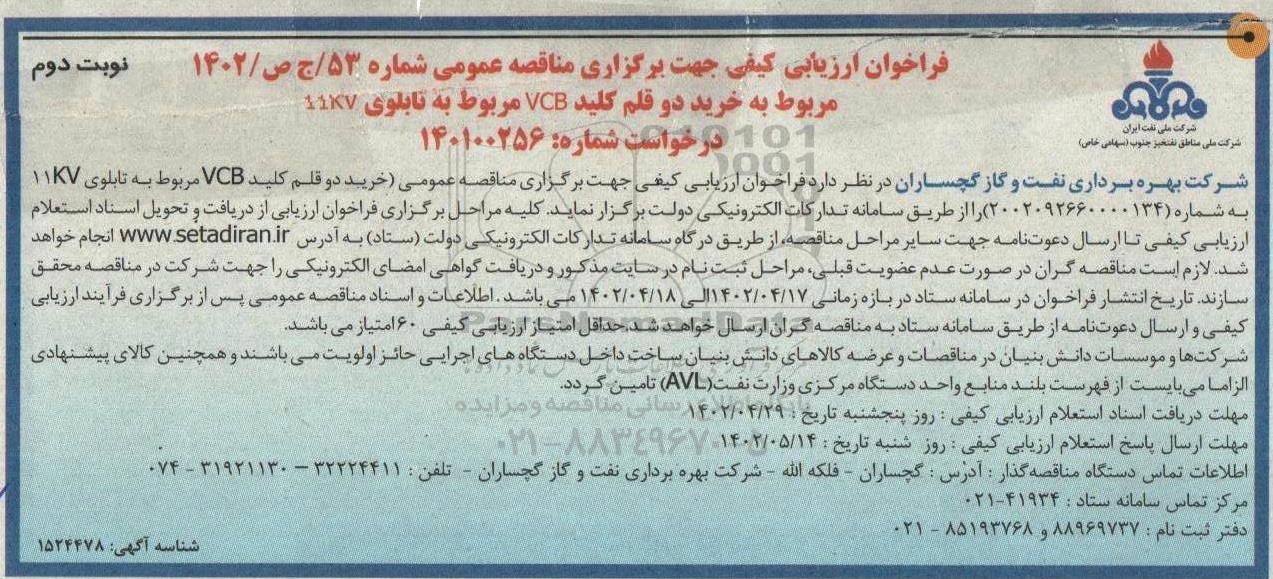 فراخوان ارزیابی کیفی جهت برگزاری مناقصه عمومی شماره ۵۳/ج ص/۱۴۰۲
نوبت دوم
مربوط به خرید دو قلم کلید VCB مربوط به تابلوی 11KV
درخواست شماره: ۱۴۰۱۰۰۲۵۶
شرکت ملی نفت ایران
شرکت ملی مناطق نفتخیز جنوب (سهامی خاص)
شرکت بهره برداری نفت و گاز گچساران در نظر دارد فراخوان ارزیابی کیفی جهت برگزاری مناقصه عمومی (خرید دو قلم کلید VCB مربوط به تابلوی ۱۱KV
به شماره (۲۰۰۲۰۹۲۶۶۰۰۰۰۱۳۴) را از طریق سامانه تدارکات الکترونیکی دولت برگزار نماید. کلیه مراحل برگزاری فراخوان ارزیابی از دریافت و تحویل اسناد استعلام
ارزیابی کیفی تا ارسال دعوت‌نامه جهت سایر مراحل مناقصه، از طریق درگاه سامانه تدارکات الکترونیکی دولت (ستاد) به آدرس www.setadiran.ir انجام خواهد
شد. لازم است مناقصه گران در صورت عدم عضویت قبلی، مراحل ثبت نام در سایت مذکور و دریافت گواهی امضای الکترونیکی را جهت شرکت در مناقصه محقق
سازند. تاریخ انتشار فراخوان در سامانه ستاد در بازه زمانی ۱۴۰۲/۰۴/۱۷ الی ۱۴۰۲/۰۴/۱۸ می باشد. اطلاعات و اسناد مناقصه عمومی پس از برگزاری فرآیند ارزیابی
کیفی و ارسال دعوت‌نامه از طریق سامانه ستاد به مناقصه گران ارسال خواهد شد. حداقل امتیاز ارزیابی کیفی ۶۰ امتیاز می باشد.
شرکت‌ها و موسسات دانش بنیان در مناقصات و عرضه کالاهای دانش بنیان ساخت داخل دستگاه های اجرایی حائز اولویت می باشند و همچنین کالای پیشنهادی
الزاما می‌بایست از فهرست بلند منابع واحد دستگاه مرکزی وزارت نفت (AVL) تامین گردد.
مهلت دریافت اسناد استعلام ارزیابی کیفی : روز پنجشنبه تاریخ : ۱۴۰۲/۰۴/۲۹
مهلت ارسال پاسخ استعلام ارزیابی کیفی : روز شنبه تاریخ : ۱۴۰۲/۰۵/۱۴
اطلاعات تماس دستگاه مناقصه‌گذار : آدرس : گچساران - فلکه الله - شرکت بهره برداری نفت و گاز گچساران - تلفن : ۳۲۲۲۴۴۱۱ – ۳۱۹۲۱۱۳۰ - ۰۷۴
مرکز تماس سامانه ستاد : ۴۱۹۳۴-۰۲۱
دفتر ثبت نام : ۸۸۹۶۹۷۳۷ و ۸۵۱۹۳۷۶۸ - ۰۲۱
شناسه آگهی: ۱۵۲۴۴۷۸
ParsNamadData
پایگاه اطلاع رسانی مناقصه و مزایده
۰۲۱-۸۸۳۴۹۶۷۰-۵